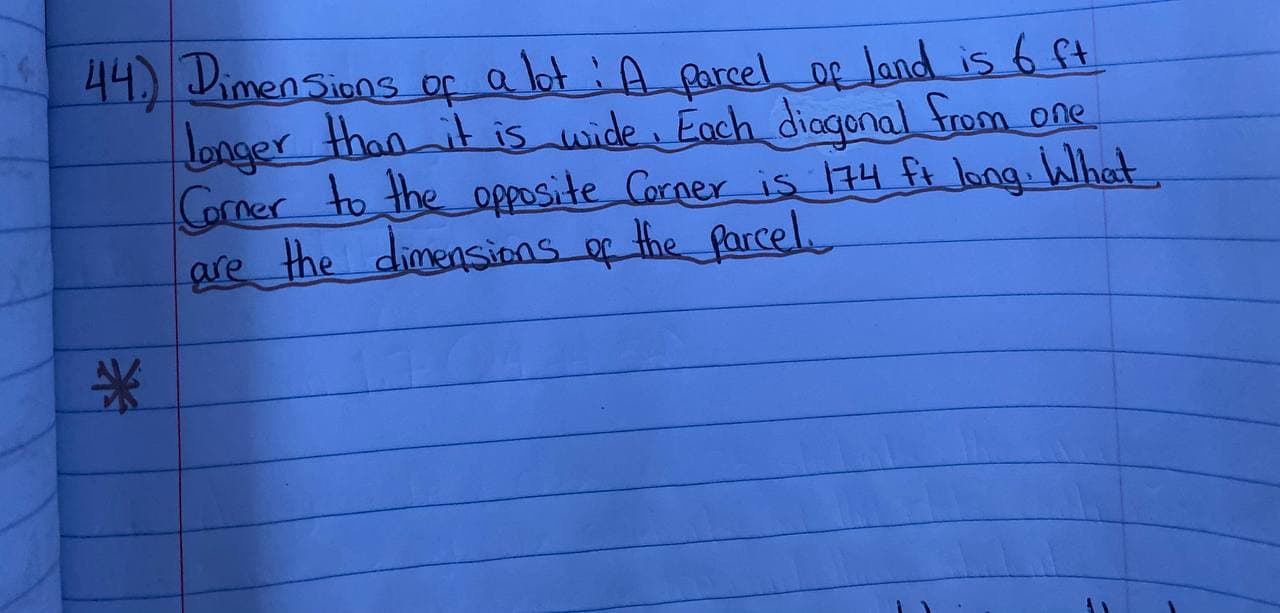 44.) Dimensions of a lot : A parcel of land is 6 ft
longer than it is wide. Each diagonal from one
Corner to the opposite Corner is 174 ft long. What
are the dimensions of the parcel.